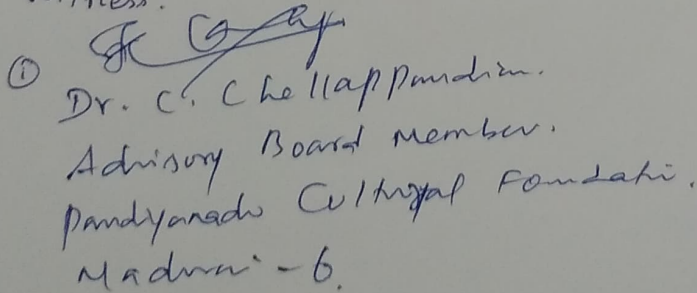 ①
Dr. C. Chellappandian.
Advisory Board Member.
Pandiyanadu Cultural Foundati.
Madurai - 6.